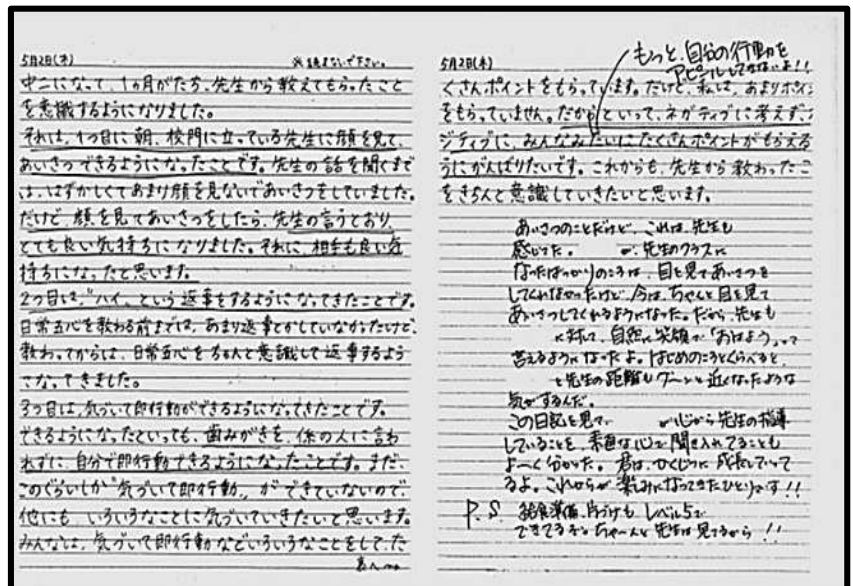 5月2日(木) ※読まないで下さい。
中二になって、1ヵ月がたち、先生から教えてもらったこと
を意識するようになりました。
それは、1つ目に朝、校門に立っている先生に顔を見て、
あいさつできるようになったことです。先生の話を聞くまで
は、はずかしくてあまり顔を見ないであいさつをしていました。
だけど、顔を見てあいさつをしたら、先生の言うとおり、
とても良い気持ちになりました。それに、相手も良い気
持ちになったと思います。
2つ目は、"ハイ"という返事をするようになってきたことです。
日常五心を教わる前までは、あまり返事とかしていなかったけど、
教わってからは、日常五心をちゃんと意識して返事するよう
になってきました。
3つ目は、気づいて即行動ができるようになってきたことです。
できるようになったといっても、歯みがきを、係の人に言わ
れずに、自分で即行動できるようになったことです。まだ、
このぐらいしか"気づいて即行動"ができていないので、
他にも、いろいろなことに気づいていきたいと思います。
みんなは、気づいて即行動などいろいろなことをして、た
5月2日(木)
もっと、自分の行動を
アピールしてきなよ!!
くさんポイントをもらっています。だけど、私は、あまりポイン
をもらっていません。だからといって、ネガティブに考えず、
ジティブに、みんなみたいにたくさんポイントがもらえる
うにがんばりたいです。これからも、先生から教わったこ
をきちんと意識していきたいと思います。
あいさつのことだけど、これは、先生も
感じてた。 が、先生のクラスに
なったばっかりのころは、目を見てあいさつを
してくれなかったけど、今は、ちゃんと目を見て
あいさつしてくれるようになった。だから、先生も
に対して、自然に笑顔で「おはよう」って
言えるようになったよ。はじめのころとくらべると、
と先生の距離もグーンと近くなったような
気がするんだ。
この日記を見て、 が心から先生の指導
していることを、素直な心で聞き入れてることも
よーく分かった。君は、かくじつに成長していって
るよ。これからが楽しみになってきたひとりです!!
P.S. 給食準備、片づけもレベル5で
できてるぞ。ちゃーんと先生は見てるから!!